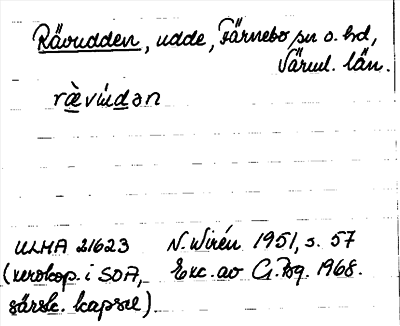 Rävudden, udde, Färnebo sn o. hd,
Värml. län.
rὲvu̇dən
ULMA 21623 N. Wirén 1951, s. 57
(xerokop. i SOA, Exc. av G. Bg. 1968.
särsk. kapsel).